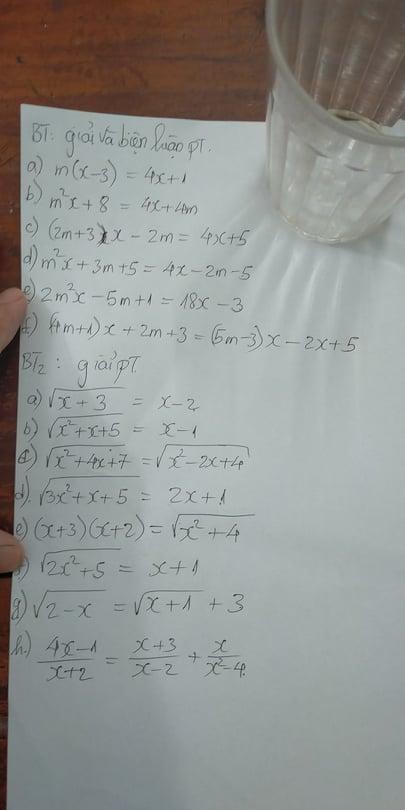 BT: giải và biện luận PT.
a) m(x-3) = 4x+1
b) m²x + 8 = 4x+4m
c) (2m+3)x - 2m = 4x+5
d) m²x + 3m+5 = 4x - 2m - 5
e) 2m²x - 5m+1 = 18x - 3
f) (4m+1)x + 2m+3 = (5m-3)x - 2x+5
BT₂: giải PT.
a) √(x + 3) = x-2
b) √(x²+x+5) = x-1
c) √(x²+4x+7) = √(x²-2x+4)
d) √(3x²+x+5) = 2x+1
e) (x+3)(x+2) = √(x²+4)
f) √(2x²+5) = x+1
g) √(2-x) = √(x+1) + 3
h) (4x-1)/(x+2) = (x+3)/(x-2) + x/(x²-4)